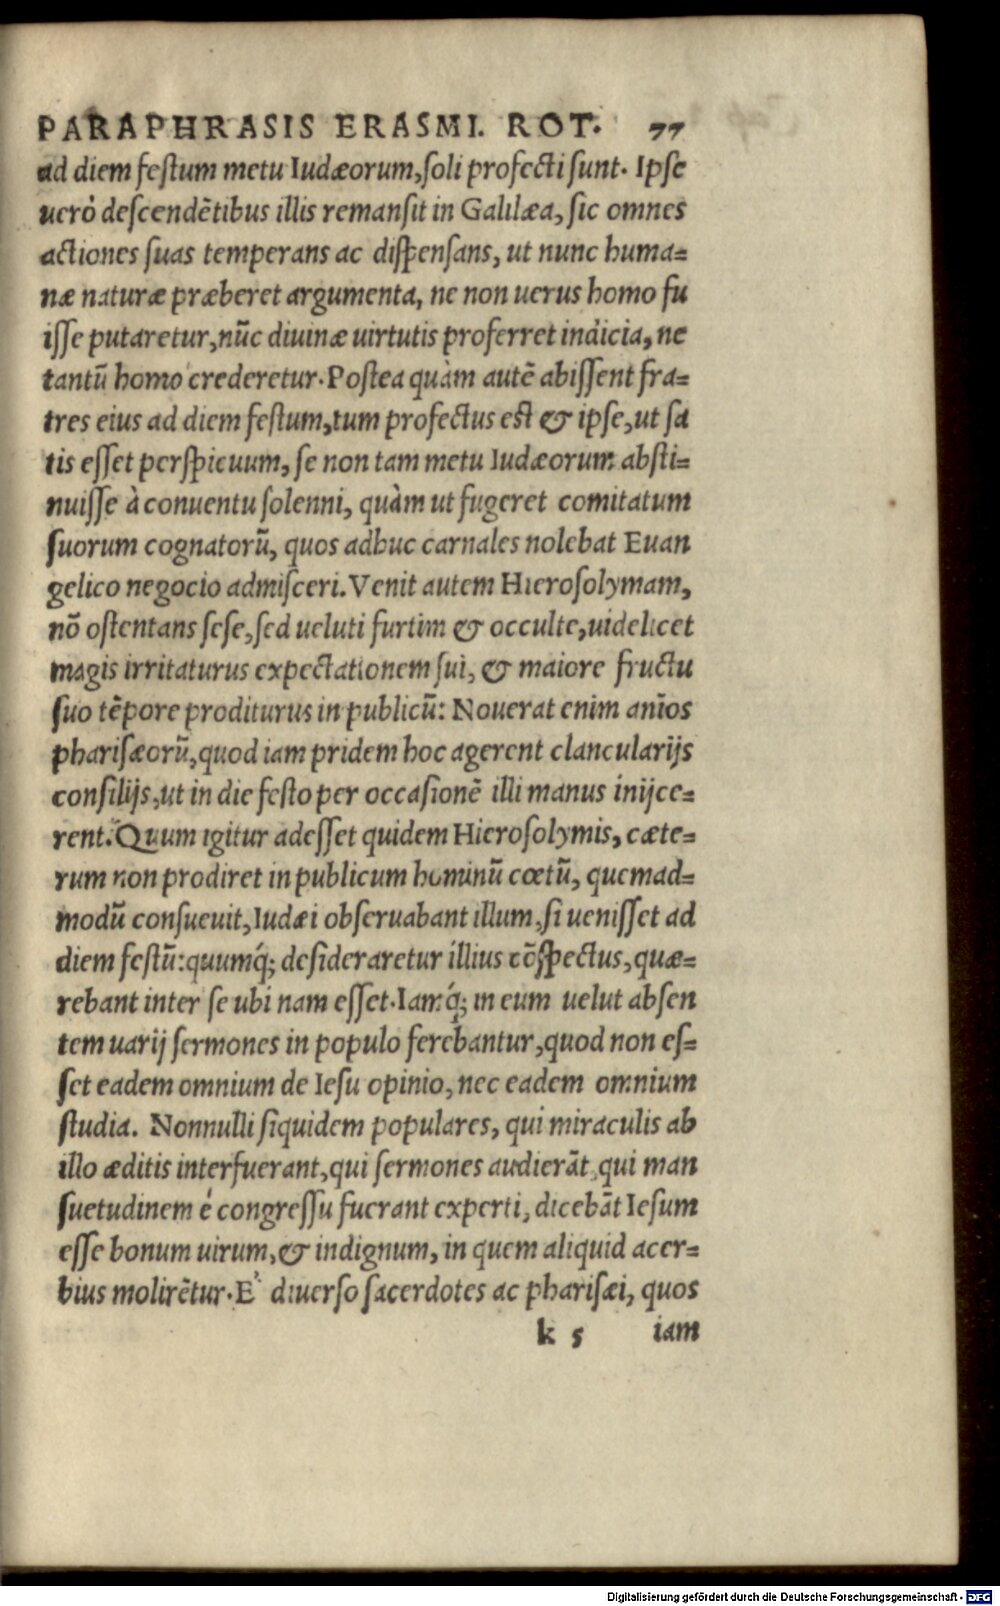 PARAPHRASIS ERASMI. ROT. 77
ad diem feſtum metu Iudæorum, ſoli profecti ſunt. Ipſe
uerò deſcendẽtibus illis remanſit in Galilæa, ſic omnes
actiones ſuas temperans ac diſpenſans, ut nunc huma=
næ naturæ præberet argumenta, ne non uerus homo fu
iſſe putaretur, nũc diuinæ uirtutis proferret indicia, ne
tantũ homo crederetur. Poſtea quàm autẽ abiſſent fra=
tres eius ad diem feſtum, tum profectus eſt & ipſe, ut ſa
tis eſſet perſpicuum, ſe non tam metu Iudæorum abſti=
nuiſſe à conuentu ſolenni, quàm ut fugeret comitatum
ſuorum cognatorũ, quos adhuc carnales nolebat Euan
gelico negocio admiſceri. Venit autem Hieroſolymam,
nõ oſtentans ſeſe, ſed ueluti furtim & occulte, uidelicet
magis irritaturus expectationem ſui, & maiore fructu
ſuo tẽpore proditurus in publicũ: Nouerat enim anĩos
phariſæorũ, quod iam pridem hoc agerent clancularijs
conſilijs, ut in die feſto per occaſionẽ illi manus inijce=
rent. Quum igitur adeſſet quidem Hieroſolymis, cæte=
rum non prodiret in publicum hominũ cœtũ, quemad=
modũ conſueuit, Iudæi obſeruabant illum, ſi ueniſſet ad
diem feſtũ: quumq́; deſideraretur illius cõſpectus, quæ=
rebant inter ſe ubi nam eſſet. Iamq́; in eum uelut abſen
tem uarij ſermones in populo ferebantur, quod non eſ=
ſet eadem omnium de Ieſu opinio, nec eadem omnium
ſtudia. Nonnulli ſiquidem populares, qui miraculis ab
illo æditis interfuerant, qui ſermones audierãt, qui man
ſuetudinem é congreſſu fuerant experti, dicebãt Ieſum
eſſe bonum uirum, & indignum, in quem aliquid acer=
bius molirẽtur. E' diuerſo ſacerdotes ac phariſæi, quos
k 5 iam
Digitalisierung gefördert durch die Deutsche Forschungsgemeinschaft - DFG